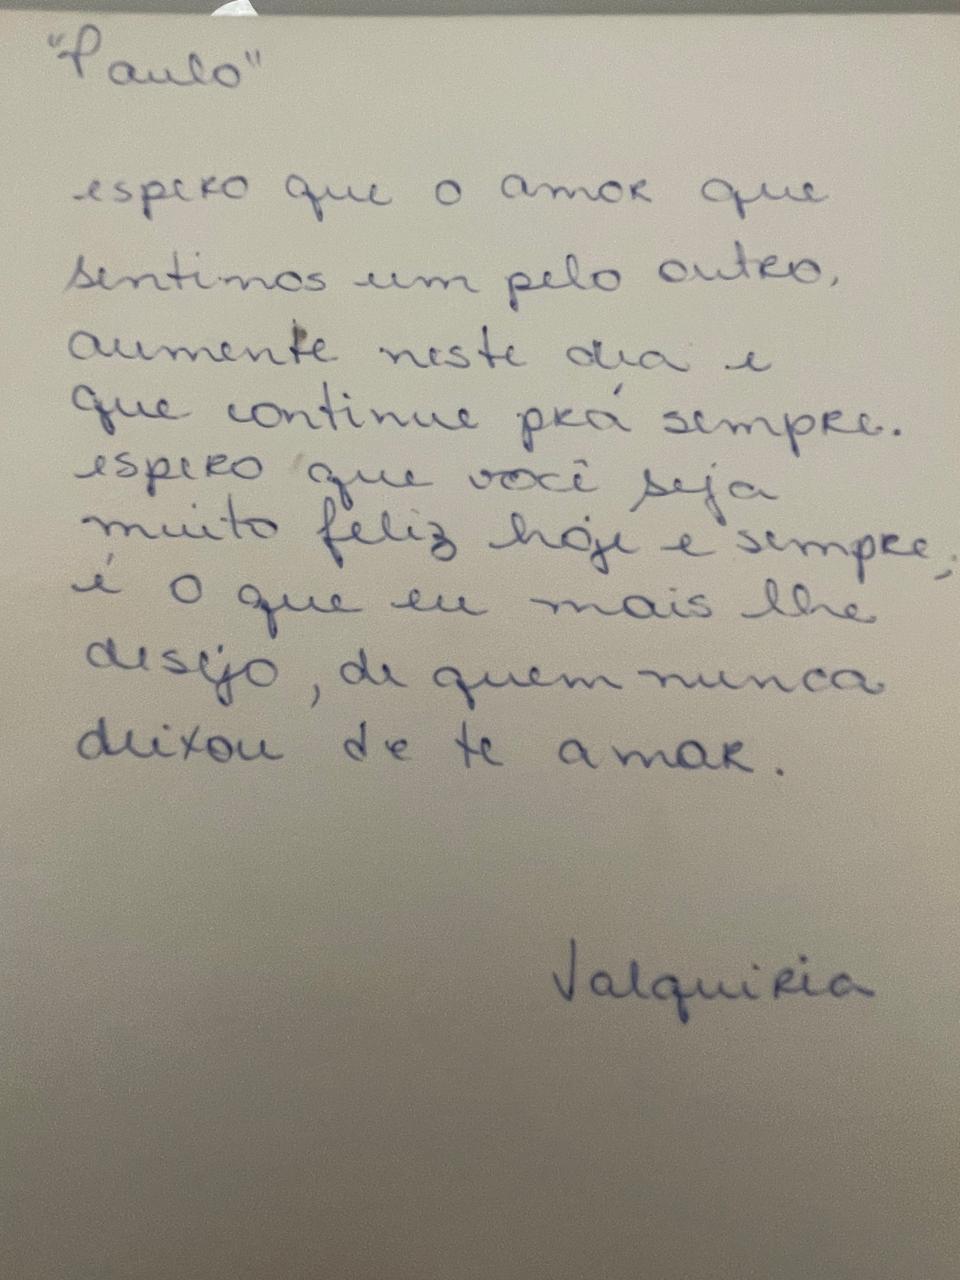 "Paulo"
espero que o amor que
sentimos um pelo outro,
aumente neste dia e
que continue prá sempre.
espero que você seja
muito feliz hoje e sempre,
é o que eu mais lhe
desejo, de quem nunca
deixou de te amar.
Valquiria